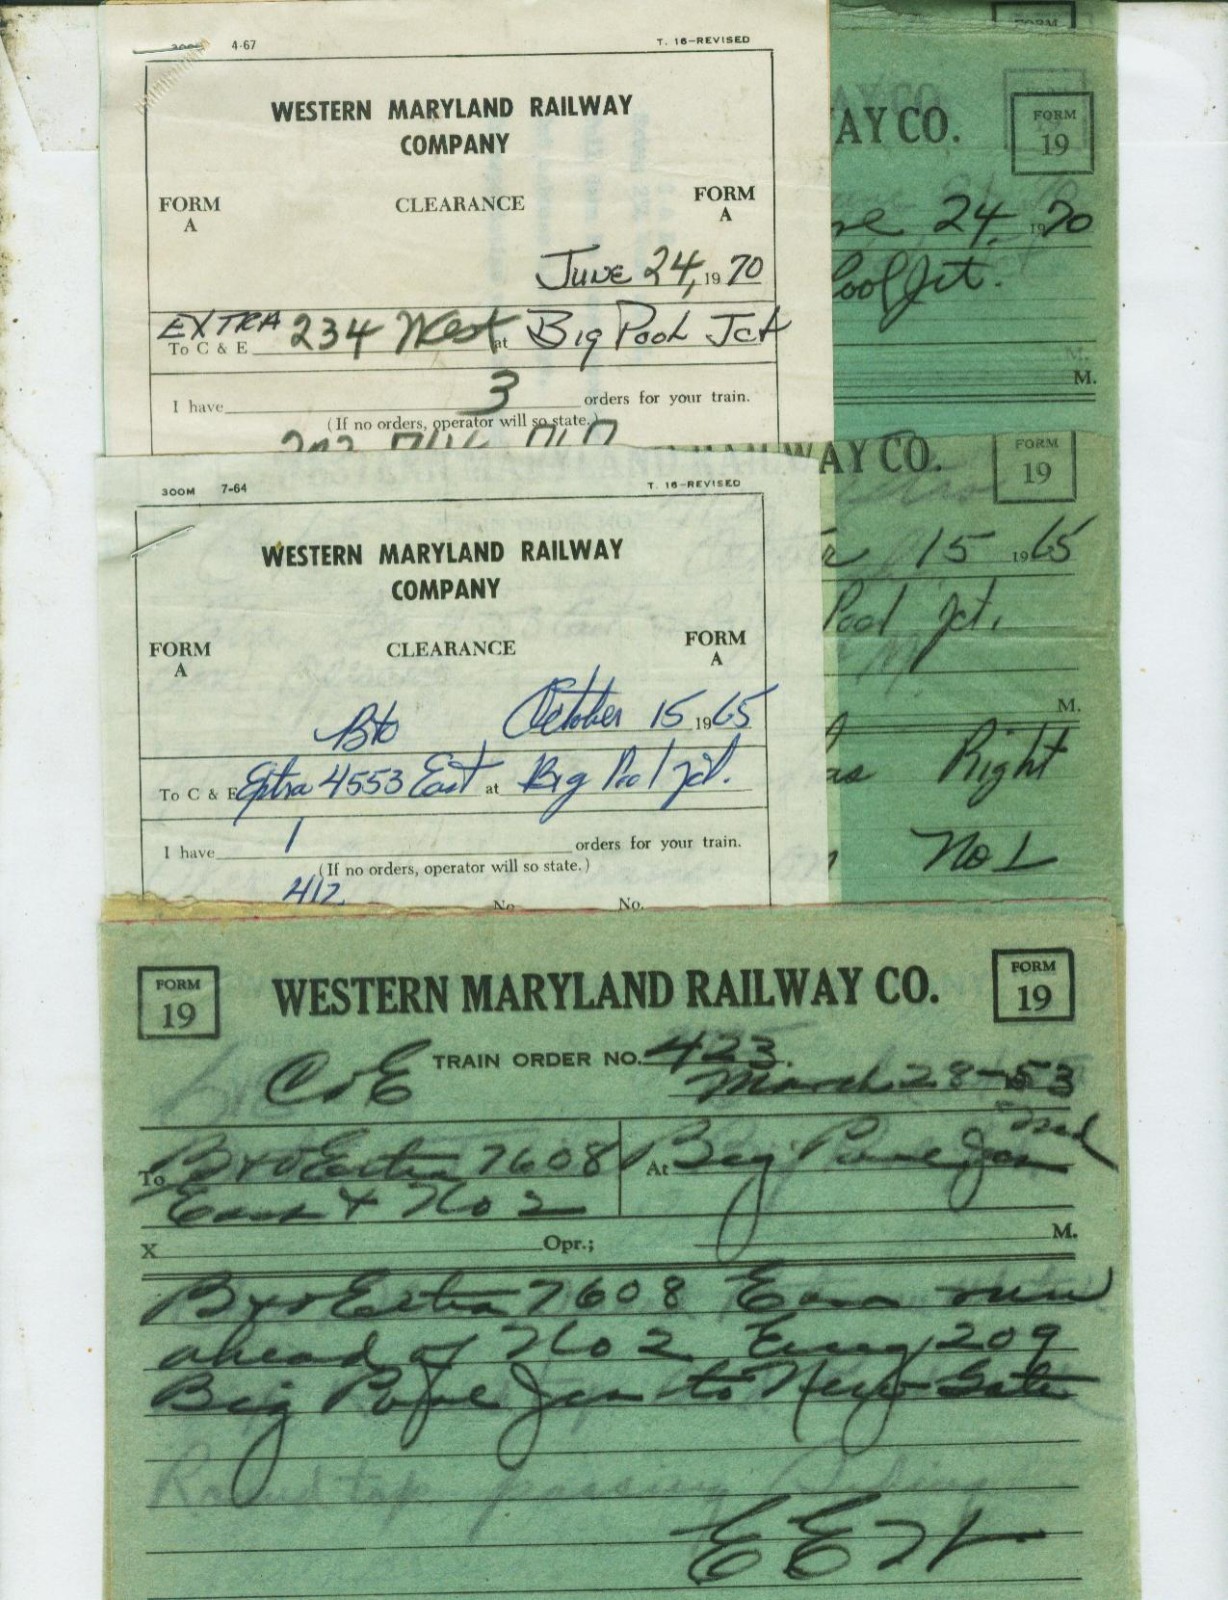 300M 4-67 T. 16-REVISED
WESTERN MARYLAND RAILWAY
COMPANY
FORM A CLEARANCE FORM A
June 24, 1970
EXTRA
To C & E 234 West at Big Pool Jct
I have 3 orders for your train.
(If no orders, operator will so state.)
FORM
AY CO. FORM 19
24, 1970
Pool Jct.
M.
M.
300M 7-64 T. 16-REVISED
WESTERN MARYLAND RAILWAY
COMPANY
FORM A CLEARANCE FORM A
B&O October 15 1965
To C & E Extra 4553 East at Big Pool Jct.
I have 1 orders for your train.
(If no orders, operator will so state.)
412 No. No.
WAY CO. FORM 19
15 1965
Pool Jct.
M.
as Right
No 1
FORM 19 WESTERN MARYLAND RAILWAY CO. FORM 19
C&E TRAIN ORDER NO. 423
March 28-53
To B&O Extra 7608 At Big Pool Jct Md
East & No 2
X Opr.; M.
B&O Extra 7608 East run
ahead of No 2 Eng 209
Big Pool Jct to
Round top passing siding